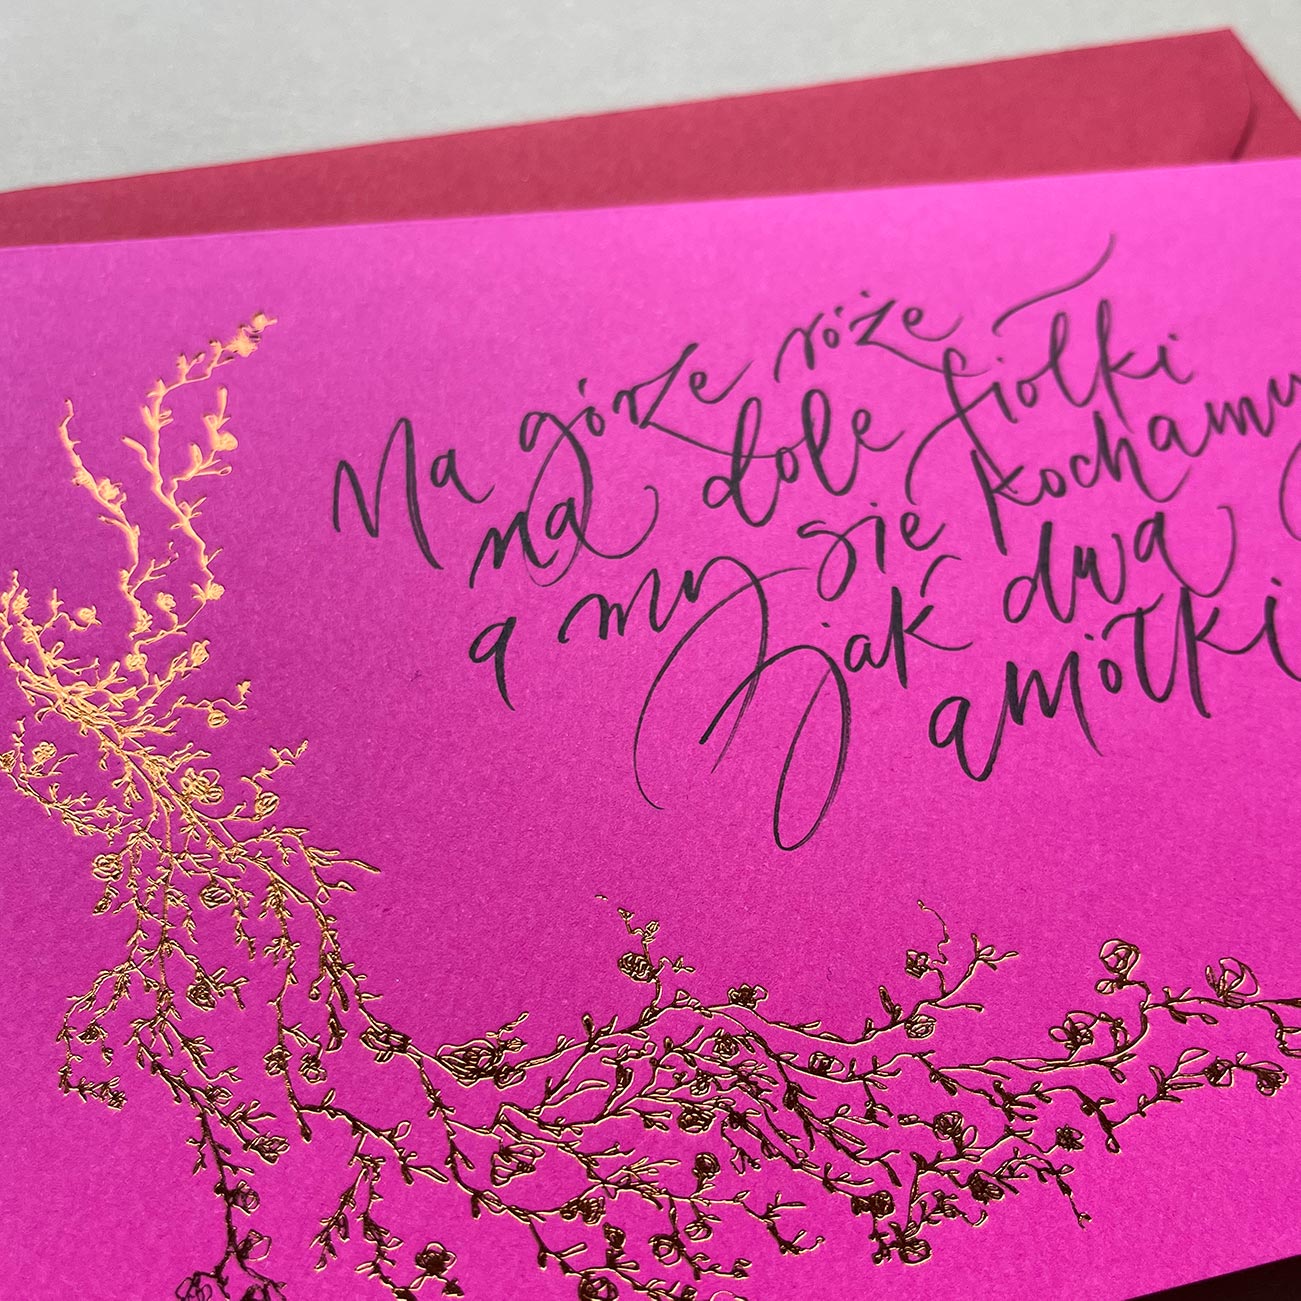 Na górze róże
na dole fiolki
a my się kochamy
jak dwa
amiołki